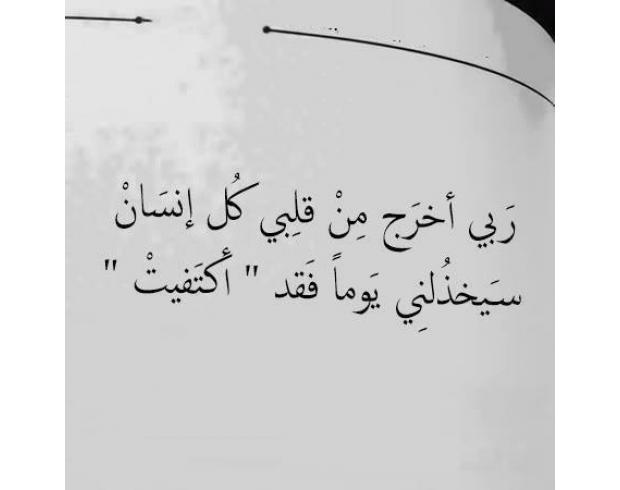 رَبي أخرَج مِنْ قلِبي كُل إنسَانْ
سيَخذُلنِي يَوماً فَقد " أَكتَفيتْ "